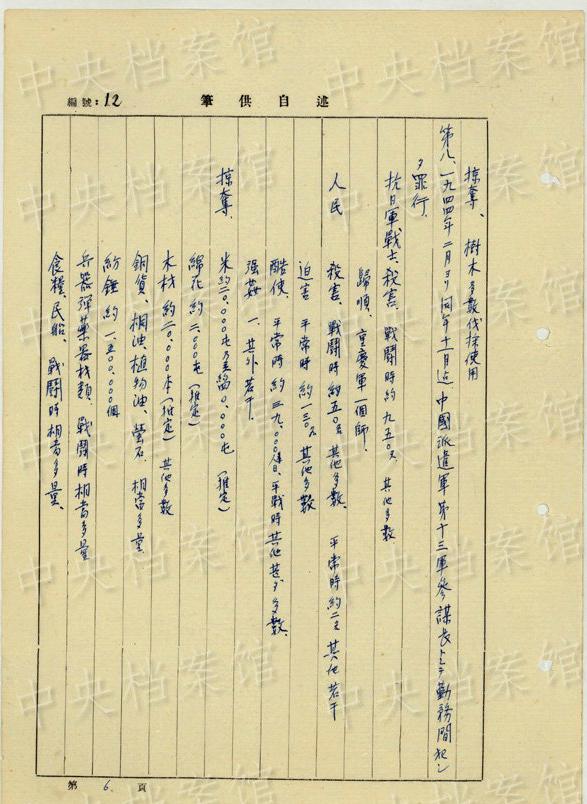 編號：12
筆供自述
掠奪、 樹木多数伐採使用
第八、一九四四年二月ヨリ同年十一月迄 中國派遣軍第十三軍参謀長トシテ勤務間犯シ
タ罪行、
抗日軍戦士、殺害、戦闘時約九五〇名 其他多数
歸順、重慶軍一個師、
人民 殺害、戦闘時約五〇名 其他多数、 平常時約二名 其他若干
迫害 平常時約一三〇名 其他多数
酷使、平常時約三九、〇〇〇人日、平戦時其他甚ダ多数、
强姦 一、其外若干、
掠奪、 米約二〇、〇〇〇屯乃至 〇、〇〇〇屯 (推定)
綿花 約二、〇〇〇屯 (推定)
木材 約二〇、〇〇〇本 (推定) 其他多数
銅貨、桐油、植物油、螢石、相當多量
紡錘約一五〇、〇〇〇個
兵器弾薬器材類、戦闘時相當多量
食糧、民船、戦闘時相當多量、
第 6 頁
中央档案馆